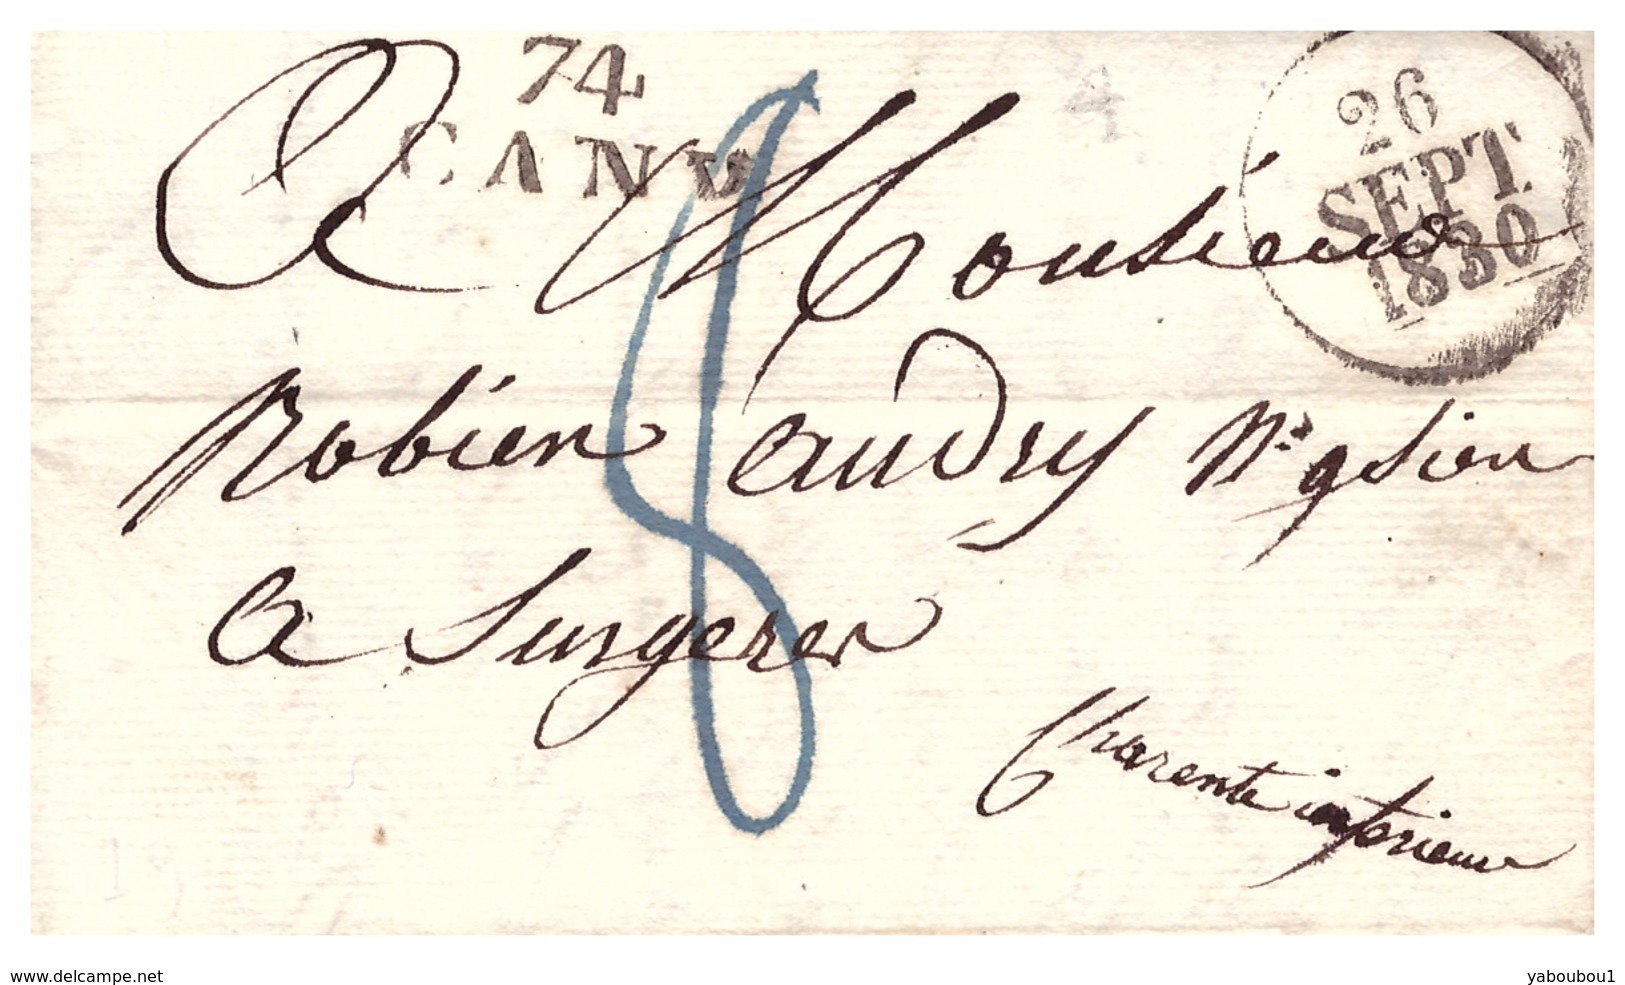 74
CANY
26
SEPT
1830
A Monsieur
Robien audry N.gosien
a Surgerer
Charente inferieur
8
www.delcampe.net
yaboubou1